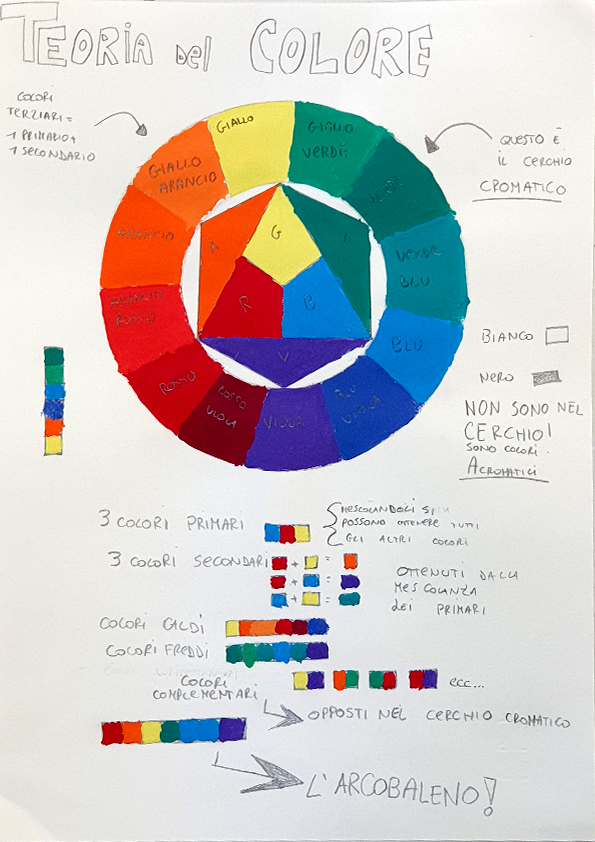 TEORIA DEL COLORE
COLORI
TERZIARI =
1 PRIMARIO +
1 SECONDARIO
QUESTO È
IL CERCHIO
CROMATICO
GIALLO
GIALLO
VERDE
VERDE
VERDE
BLU
BLU
BLU
VIOLA
VIOLA
ROSSO
VIOLA
ROSSO
ARANCIO
ROSSO
ARANCIO
GIALLO
ARANCIO
A
G
V
R
B
V
BIANCO
NERO
NON SONO NEL
CERCHIO!
SONO COLORI
ACROMATICI
3 COLORI PRIMARI
MESCOLANDOLI SI
POSSONO OTTENERE TUTTI
GLI ALTRI COLORI
3 COLORI SECONDARI
+ =
+ =
+ =
OTTENUTI DALLA
MESCOLANZA
DEI PRIMARI
COLORI CALDI
COLORI FREDDI
COLORI
COMPLEMENTARI
ecc...
OPPOSTI NEL CERCHIO CROMATICO
L'ARCOBALENO!